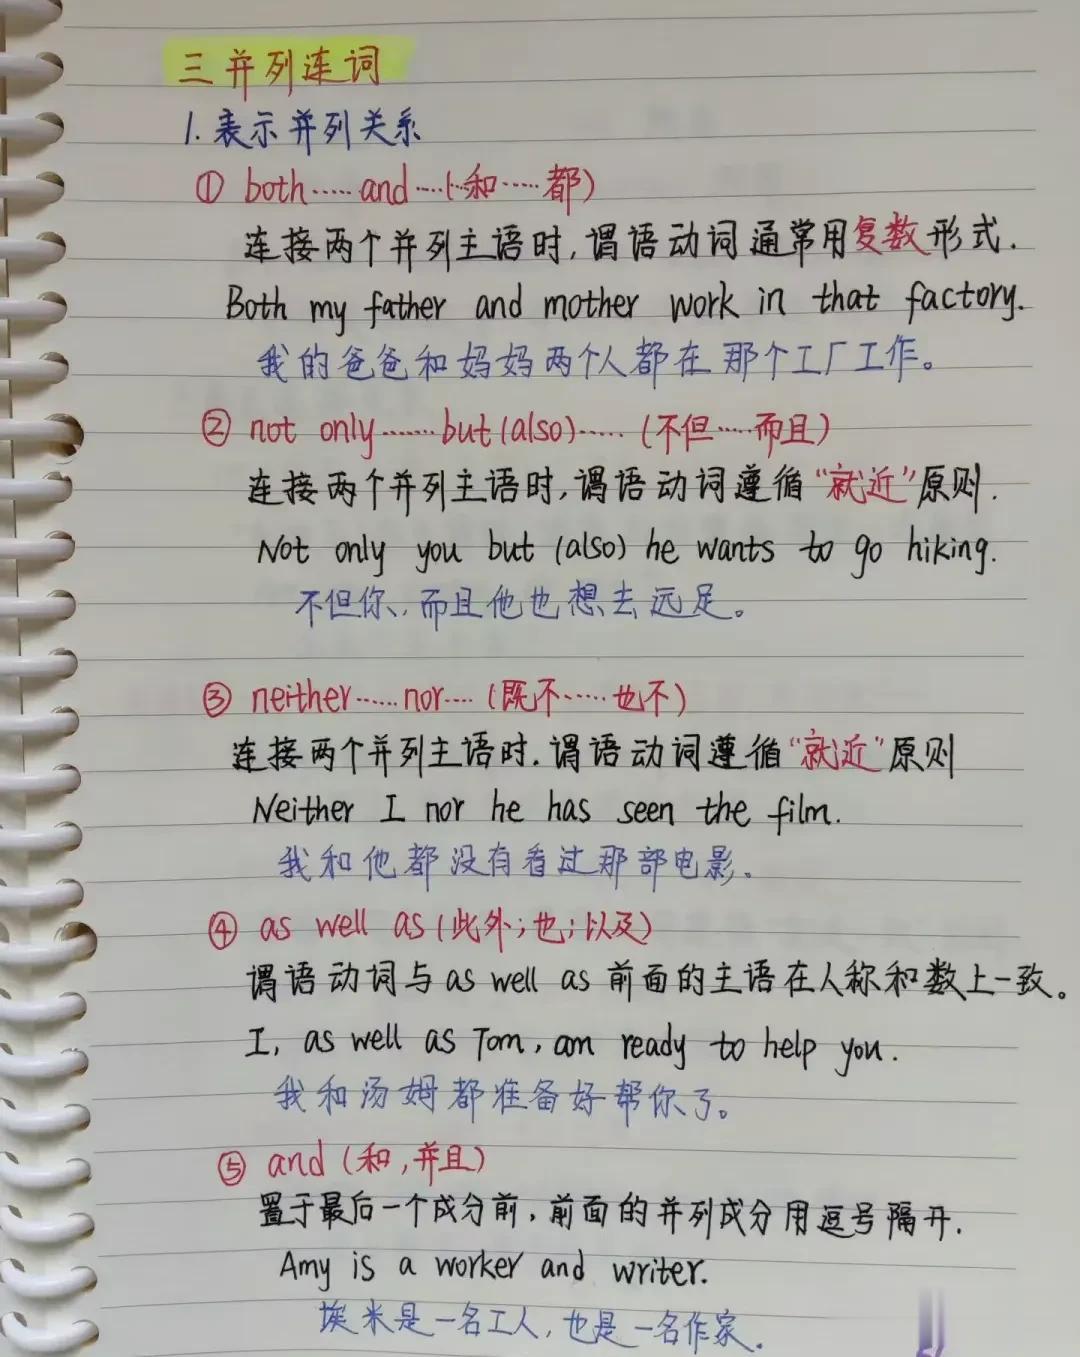 三 并列连词
1. 表示并列关系
① both……and……(…和……都)
连接两个并列主语时,谓语动词通常用复数形式.
Both my father and mother work in that factory.
我的爸爸和妈妈两个人都在那个工厂工作。
② not only……but(also)……(不但……而且)
连接两个并列主语时,谓语动词遵循“就近”原则.
Not only you but (also) he wants to go hiking.
不但你、而且他也想去远足。
③ neither……nor……(既不……也不)
连接两个并列主语时.谓语动词遵循“就近”原则
Neither I nor he has seen the film.
我和他都没有看过那部电影。
④ as well as(此外;也;以及)
谓语动词与as well as前面的主语在人称和数上一致。
I, as well as Tom, am ready to help you.
我和汤姆都准备好帮你了。
⑤ and (和,并且)
置于最后一个成分前,前面的并列成分用逗号隔开.
Amy is a worker and writer.
埃米是一名工人,也是一名作家.